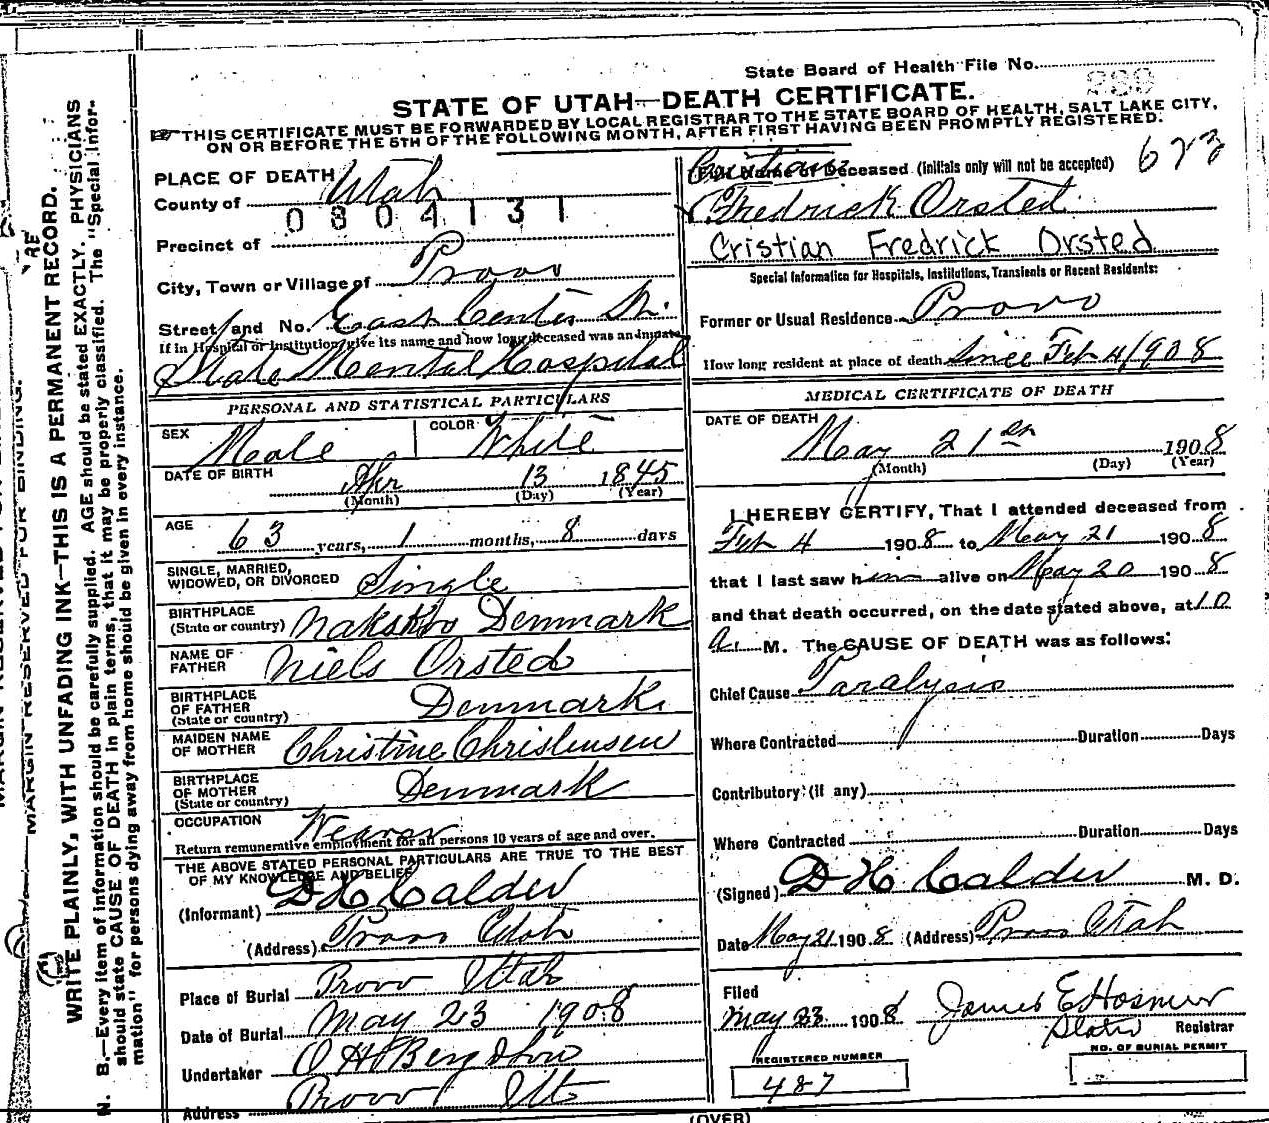 State Board of Health File No. 289
STATE OF UTAH—DEATH CERTIFICATE.
THIS CERTIFICATE MUST BE FORWARDED BY LOCAL REGISTRAR TO THE STATE BOARD OF HEALTH, SALT LAKE CITY,
ON OR BEFORE THE 5TH OF THE FOLLOWING MONTH, AFTER FIRST HAVING BEEN PROMPTLY REGISTERED.
PLACE OF DEATH
County of Utah
0804131
Precinct of
City, Town or Village of Provo
Street and No. East Center St.
If in Hospital or Institution, give its name and how long deceased was an inmate
State Mental Hospital
PERSONAL AND STATISTICAL PARTICULARS
SEX Male COLOR White
DATE OF BIRTH Apr 13 1845
(Month) (Day) (Year)
AGE 63 years, 1 months, 8 days
SINGLE, MARRIED,
WIDOWED, OR DIVORCED Single
BIRTHPLACE
(State or country) Denmark
NAME OF
FATHER Niels Orsted
BIRTHPLACE
OF FATHER
(State or country) Denmark
MAIDEN NAME
OF MOTHER Christine Christensen
BIRTHPLACE
OF MOTHER
(State or country) Denmark
OCCUPATION Weaver
Return remunerative employment for all persons 10 years of age and over.
THE ABOVE STATED PERSONAL PARTICULARS ARE TRUE TO THE BEST
OF MY KNOWLEDGE AND BELIEF
(Informant) D H Calder
(Address) Provo Utah
Place of Burial Provo Utah
Date of Burial May 23 1908
Undertaker O H Berg
Address Provo Ut
Cristian
Full Name of Deceased (Initials only will not be accepted) 623
Fredrick Orsted
Cristian Fredrick Orsted
Special Information for Hospitals, Institutions, Transients or Recent Residents:
Former or Usual Residence Provo
How long resident at place of death since Feb 4/1908
MEDICAL CERTIFICATE OF DEATH
DATE OF DEATH
May 21 1908
(Month) (Day) (Year)
I HEREBY CERTIFY, That I attended deceased from
Feb 4 1908 to May 21 1908
that I last saw him alive on May 20 1908
and that death occurred, on the date stated above, at 10
a. M. The CAUSE OF DEATH was as follows:
Chief Cause Paralysis
Where Contracted Duration Days
Contributory (if any)
Where Contracted Duration Days
(Signed) D H Calder M. D.
Date May 21 1908 (Address) Provo Utah
Filed
May 23 1908 James E Hosmer
State Registrar
REGISTERED NUMBER
487
NO. OF BURIAL PERMIT
(OVER)
MARGIN RESERVED FOR BINDING.
WRITE PLAINLY, WITH UNFADING INK—THIS IS A PERMANENT RECORD.
N. B.—Every item of information should be carefully supplied. AGE should be stated EXACTLY. PHYSICIANS
should state CAUSE OF DEATH in plain terms, that it may be properly classified. The "Special Infor-
mation" for persons dying away from home should be given in every instance.